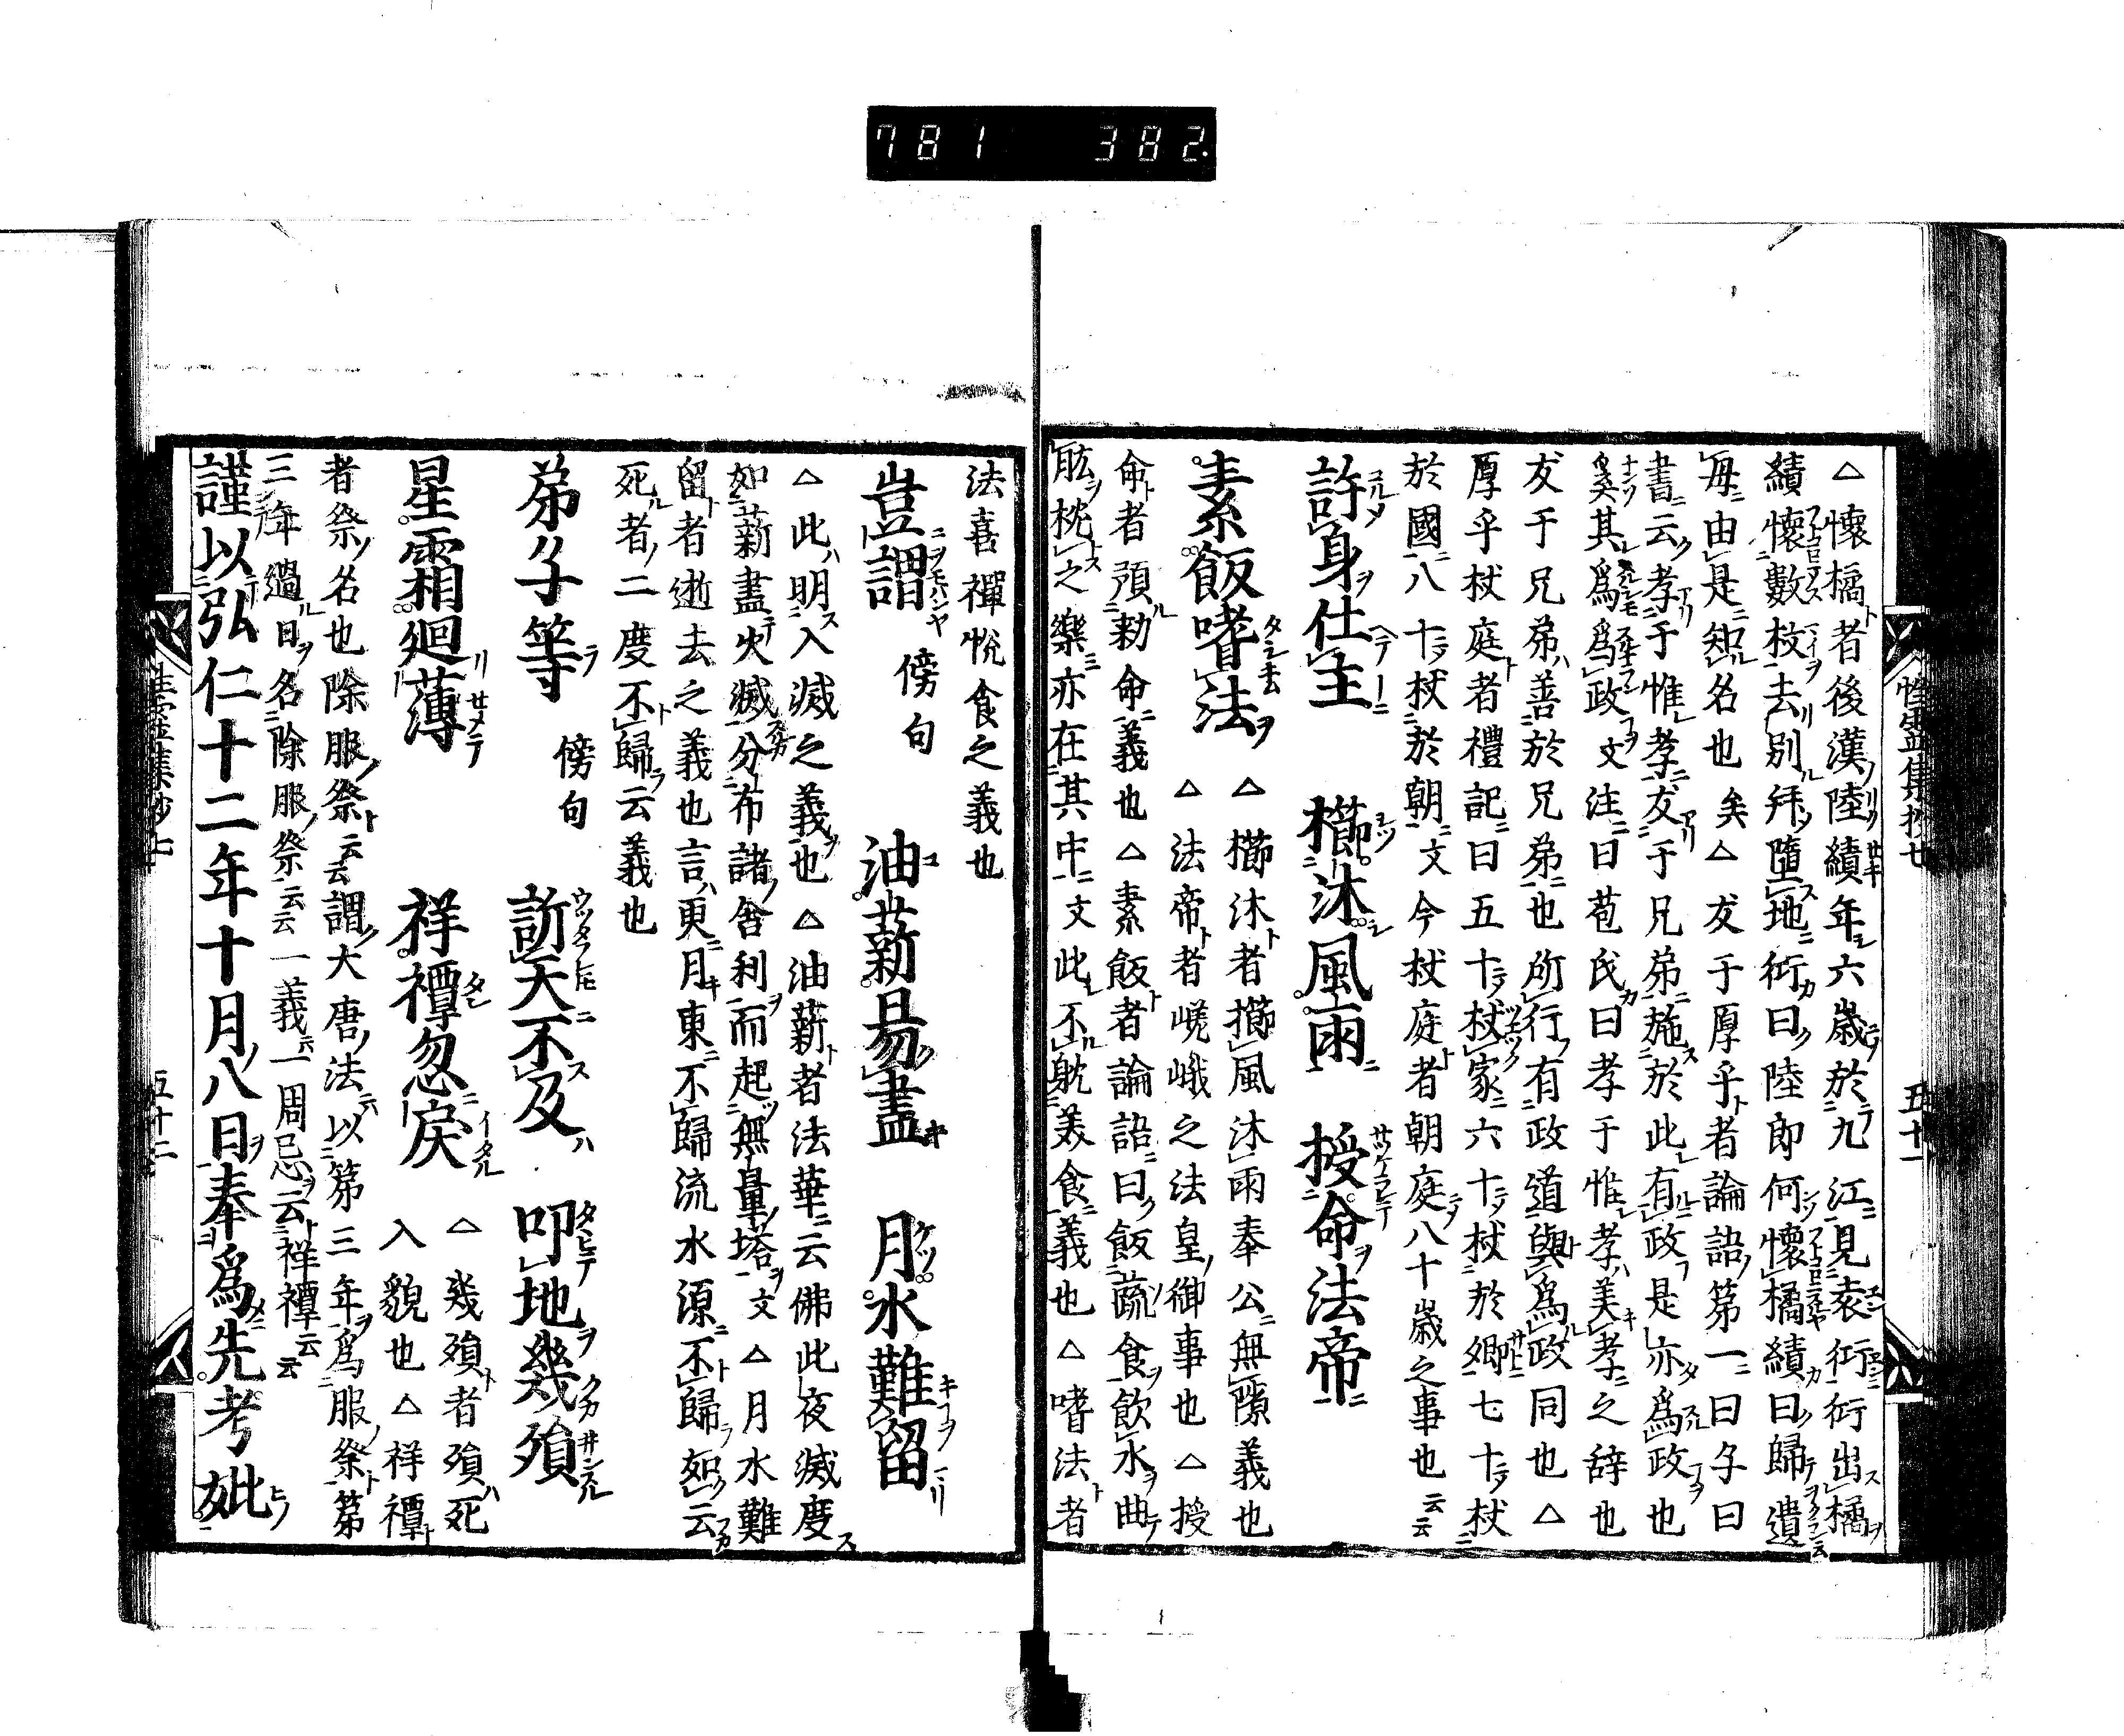 781 382.
性霊集抄七 五十一
△懷橘者後漢陸績年六歳於九江見袁術術出橘
績懷數枚去別拜墮地術曰陸郎何懷橘績曰歸遺
母由是知名也矣△友于厚乎者論語第一曰子曰
書云孝于惟孝友于兄弟施於此有政是亦爲政也
奚其爲爲政文注曰苞氏曰孝于惟孝美孝之辞也
友于兄弟善於兄弟也所行有政道與爲政同也△
厚乎杖庭者禮記曰五十杖家六十杖於郷七十杖
於國八十杖於朝文今杖庭者朝庭八十歳之事也云云
許身仕主 櫛沐風雨 授命法帝
素飯嗜法 △櫛沐者擳風沐雨奉公無隙義也
△法帝者嵯峨之法皇御事也△授
命者預勅命義也△素飯者論語曰飯蔬食飲水曲
肱枕之樂亦在其中文此不躭美食義也△嗜法者
法喜禪悅食之義也
豈謂 傍句 油薪易盡 月水難留
△此明入滅之義也△油薪者法華云佛此夜滅度
如薪盡火滅分布諸舎利而起無量塔文△月水難
留者逝去之義也言更月東不歸流水源不歸如云
死者二度不歸云義也
弟子等 傍句 訴天不及 叩地幾殞
星霜廻薄 祥禫忽戻 △幾殞者殞死
入貌也△祥禫
者祭名也除服祭云云謂大唐法以第三年爲服祭第
三年過日名除服祭云云一義云一周忌云祥禫云云
謹以弘仁十二年十月八日奉爲先考妣
性霊集抄七 五十二